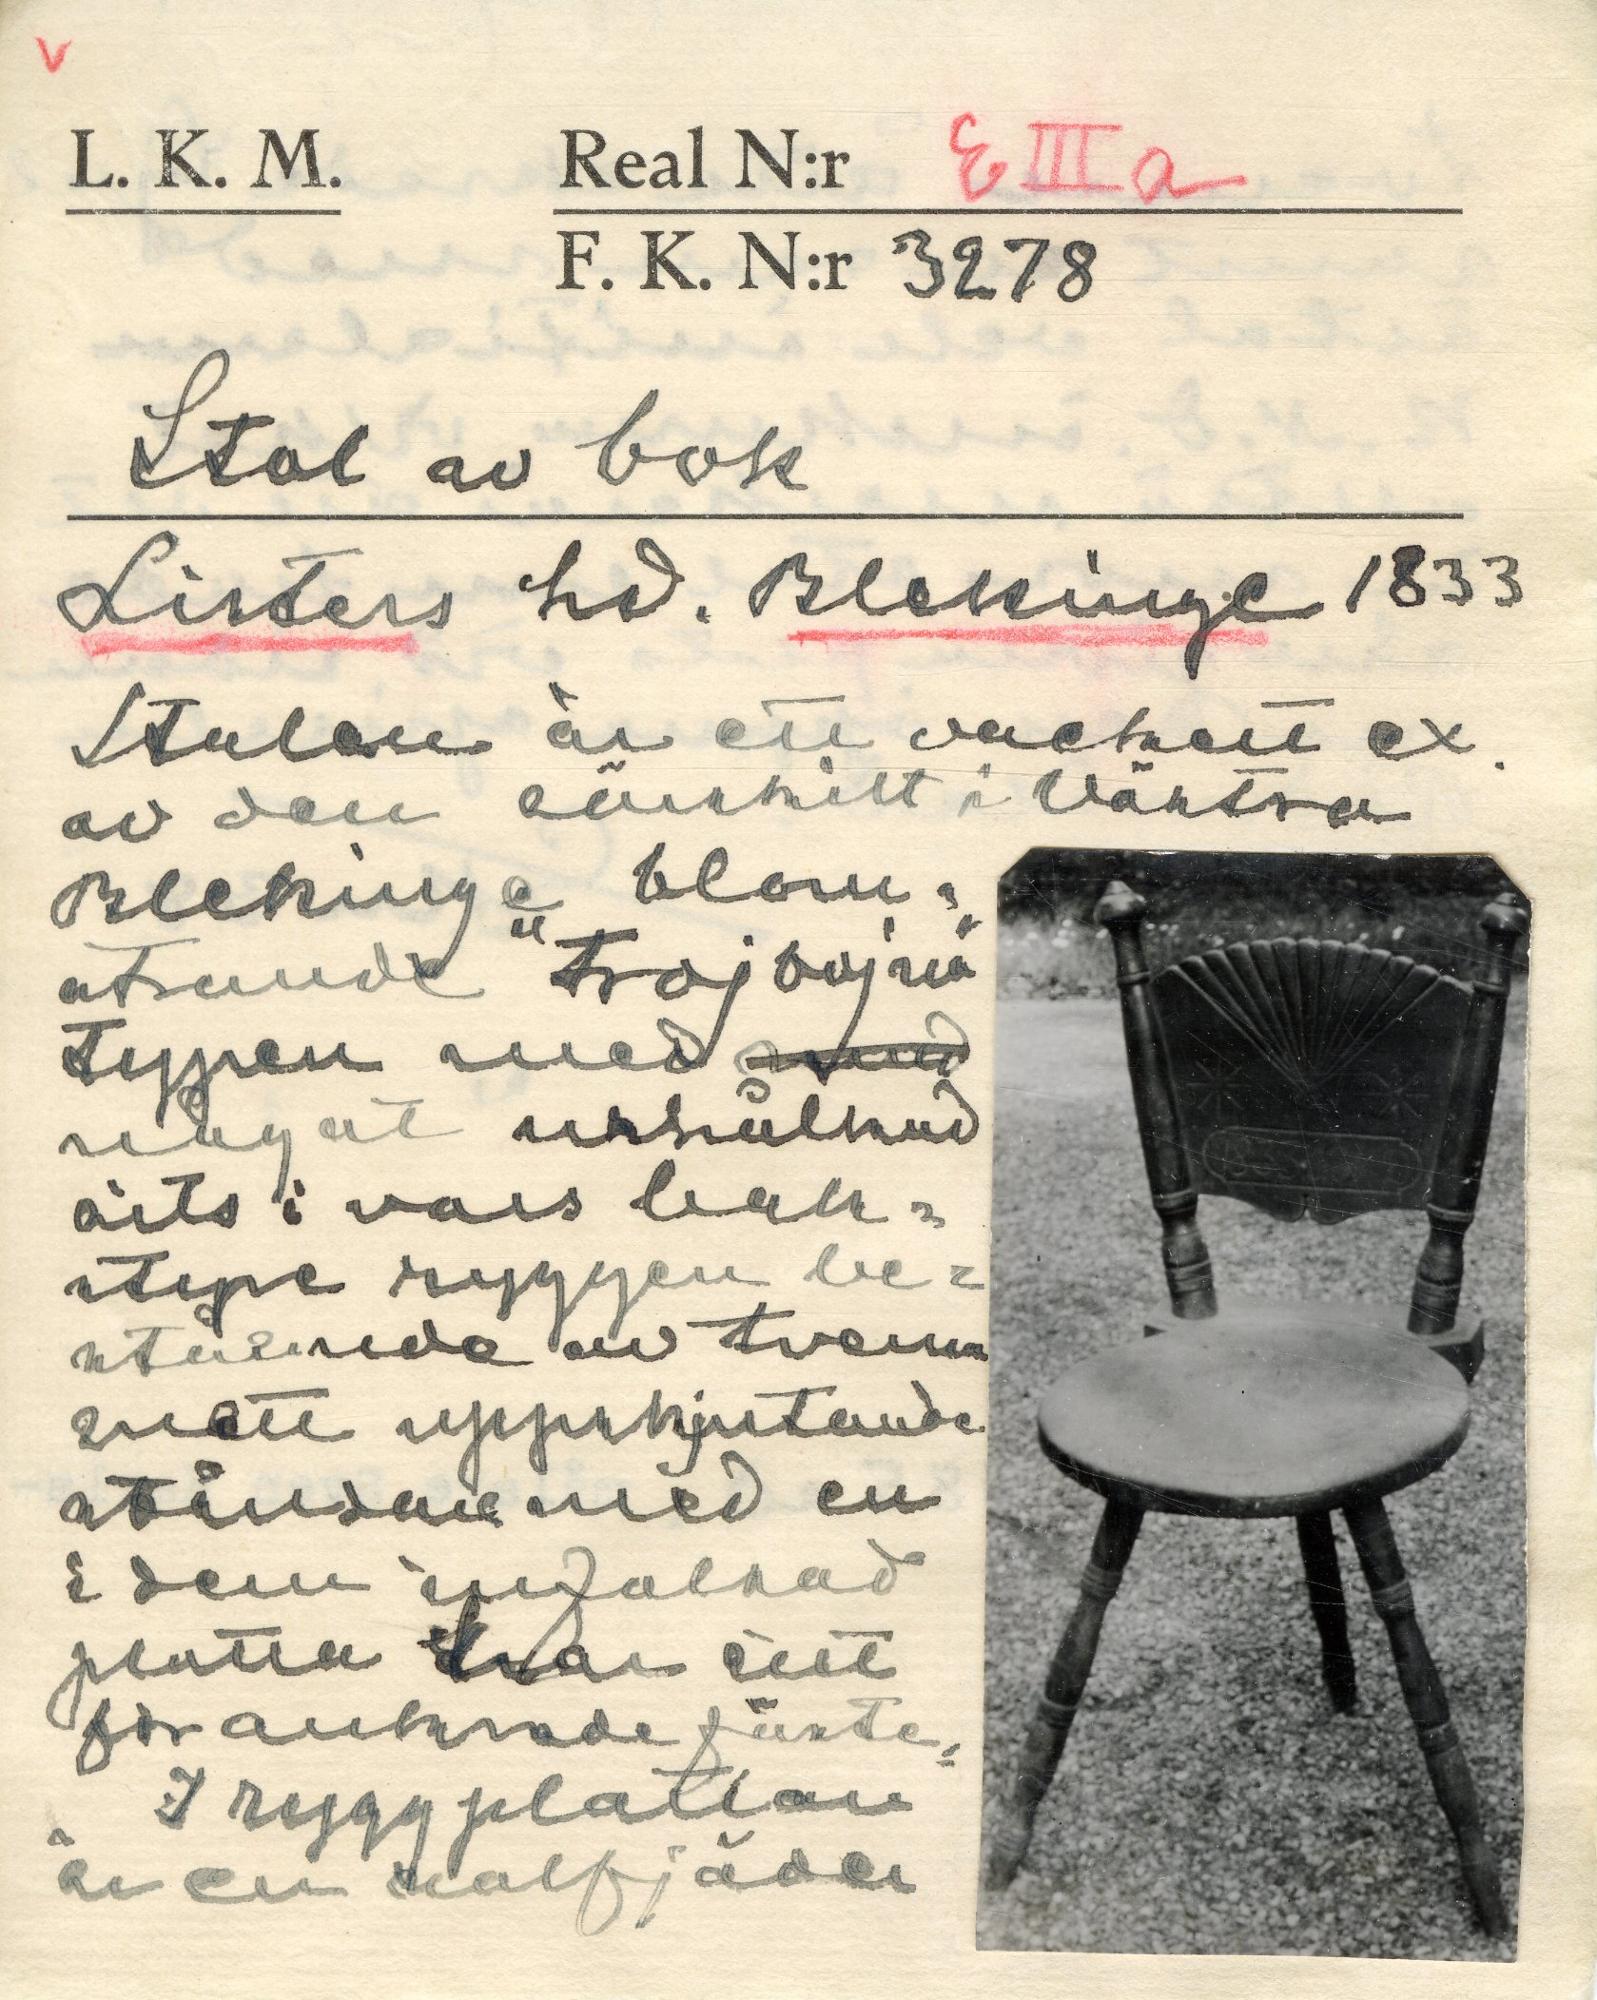 v
L. K. M. Real N:r E III a
F. K. N:r 3278
Stol av bok
Listers hd. Blekinge 1833
Stolen är ett vackert ex.
av den särskilt i Västra
Blekinge blom-
strande "
typen med
något urholkad
sits i vars bak-
stycke ryggen be-
stående av tvenne
snett uppskjutande
ståndare med en
i dem infalsad
platta har sitt
förankrade fäste.
I ryggplattan
är en solfjäder